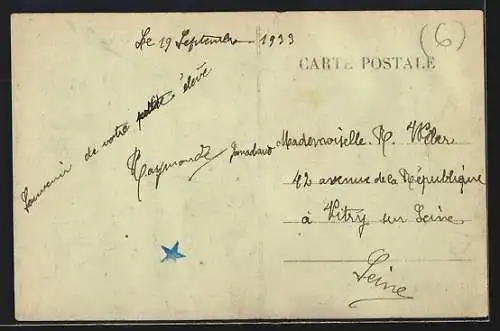 Le 19 Septembre 1933
(6)
CARTE POSTALE
Souvenir de votre petite élève
Raymonde
Mademoiselle. R.
42 avenue de la République
à Vitry sur Seine
Seine